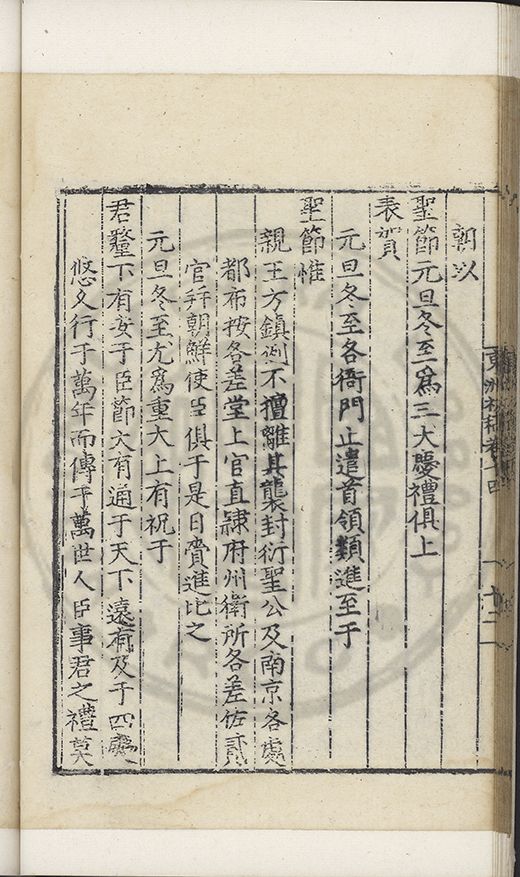 朝以
聖節元旦冬至爲三大慶禮俱上
表賀
元旦冬至各衙門止遣首領類進至于
聖節惟
親王方鎮例不擅離其襲封衍聖公及南京各處
都布按各差堂上官直隸府州衛所各差佐貳
官幷朝鮮使臣俱于是日賫進比之
元旦冬至尤爲重大上有祝于
君釐下有安于臣節大有通于天下遠有及于四處
悠久行于萬年而傳于萬世人臣事君之禮莫
東洲初稿卷十四
十二